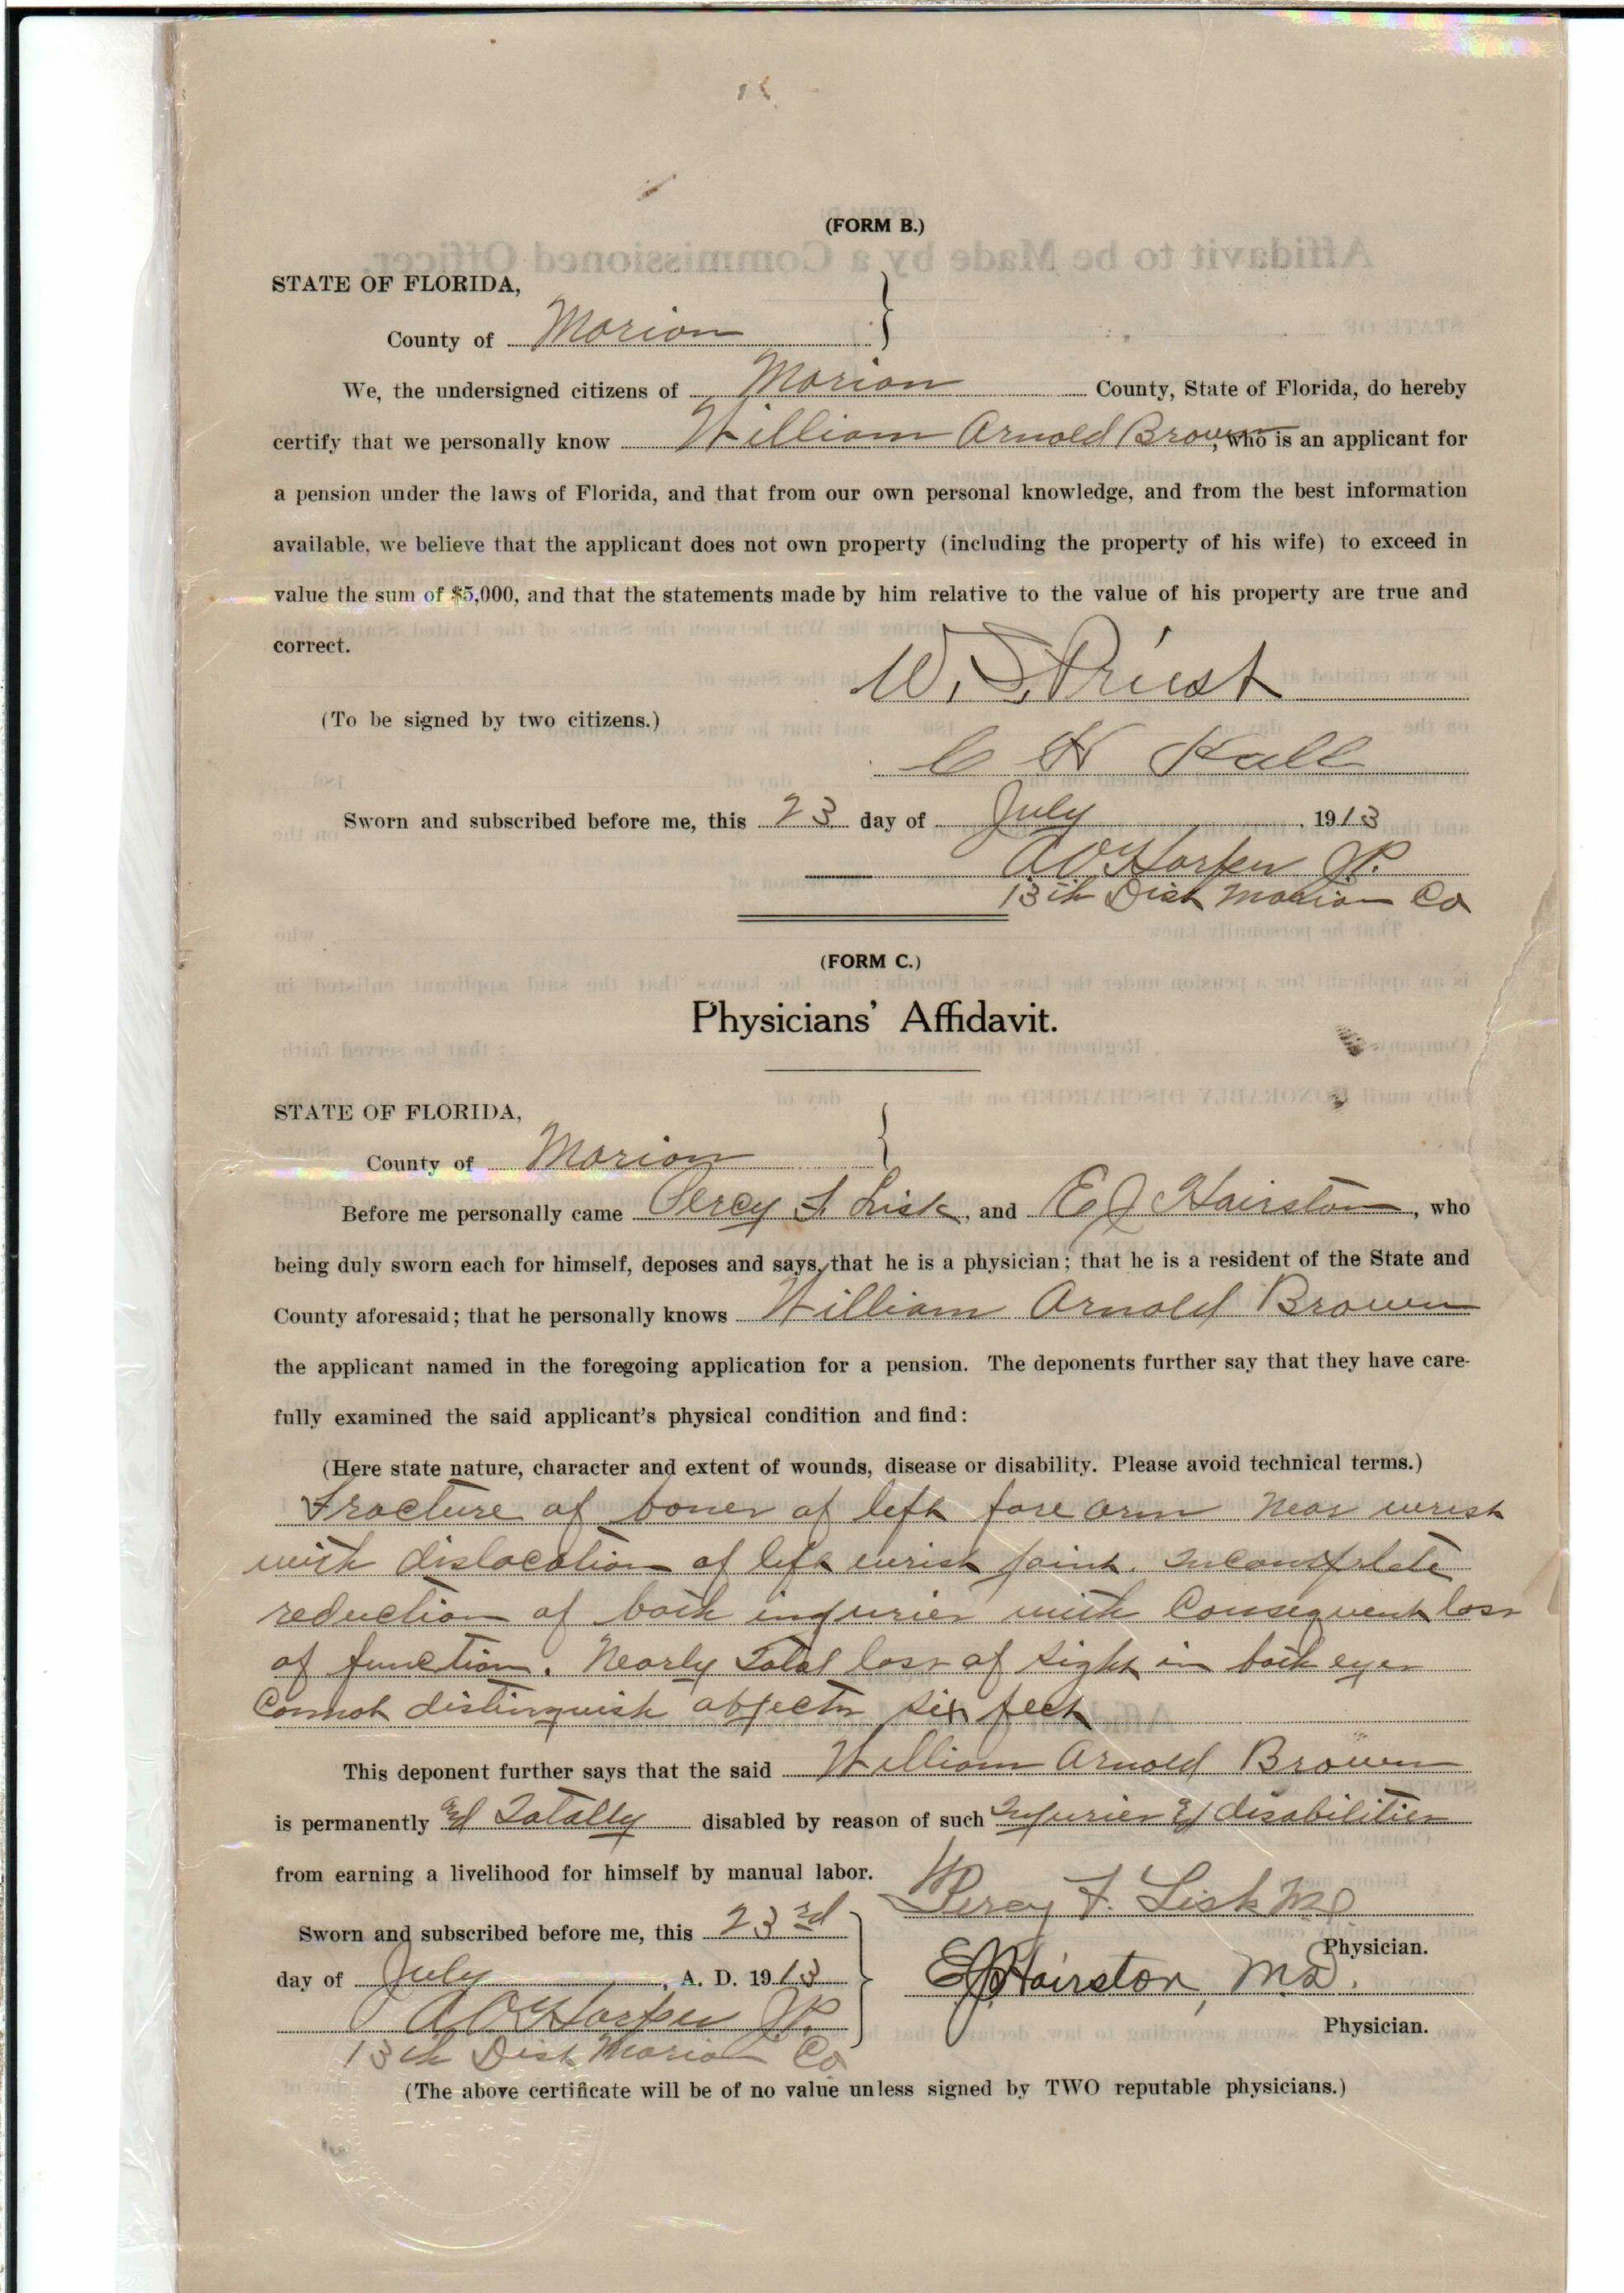 (FORM B.)
STATE OF FLORIDA,
County of Marion
We, the undersigned citizens of Marion County, State of Florida, do hereby
certify that we personally know William Arnold Brown, who is an applicant for
a pension under the laws of Florida, and that from our own personal knowledge, and from the best information
available, we believe that the applicant does not own property (including the property of his wife) to exceed in
value the sum of $5,000, and that the statements made by him relative to the value of his property are true and
correct.
W. S. Priest
(To be signed by two citizens.)
C H Hall
Sworn and subscribed before me, this 23 day of July, 1913
Harper JP.
13th Dist Marion Co
(FORM C.)
Physicians' Affidavit.
STATE OF FLORIDA,
County of Marion
Before me personally came Percy F Lisk, and E J Hairston, who
being duly sworn each for himself, deposes and says, that he is a physician; that he is a resident of the State and
County aforesaid; that he personally knows William Arnold Brown
the applicant named in the foregoing application for a pension. The deponents further say that they have care-
fully examined the said applicant's physical condition and find:
(Here state nature, character and extent of wounds, disease or disability. Please avoid technical terms.)
Fracture of bones of left fore arm near wrist
with dislocation of left wrist joint. Incomplete
reduction of both injuries with Consequent loss
of function. Nearly Total loss of sight in both eyes
Cannot distinguish objects six feet
This deponent further says that the said William Arnold Brown
is permanently & Totally disabled by reason of such Injuries & disabilities
from earning a livelihood for himself by manual labor.
Percy F. Lisk MD
Physician.
Sworn and subscribed before me, this 23rd
day of July, A. D. 1913
E J Hairston, MD.
Physician.
Harper JP.
13th Dist Marion Co
(The above certificate will be of no value unless signed by TWO reputable physicians.)